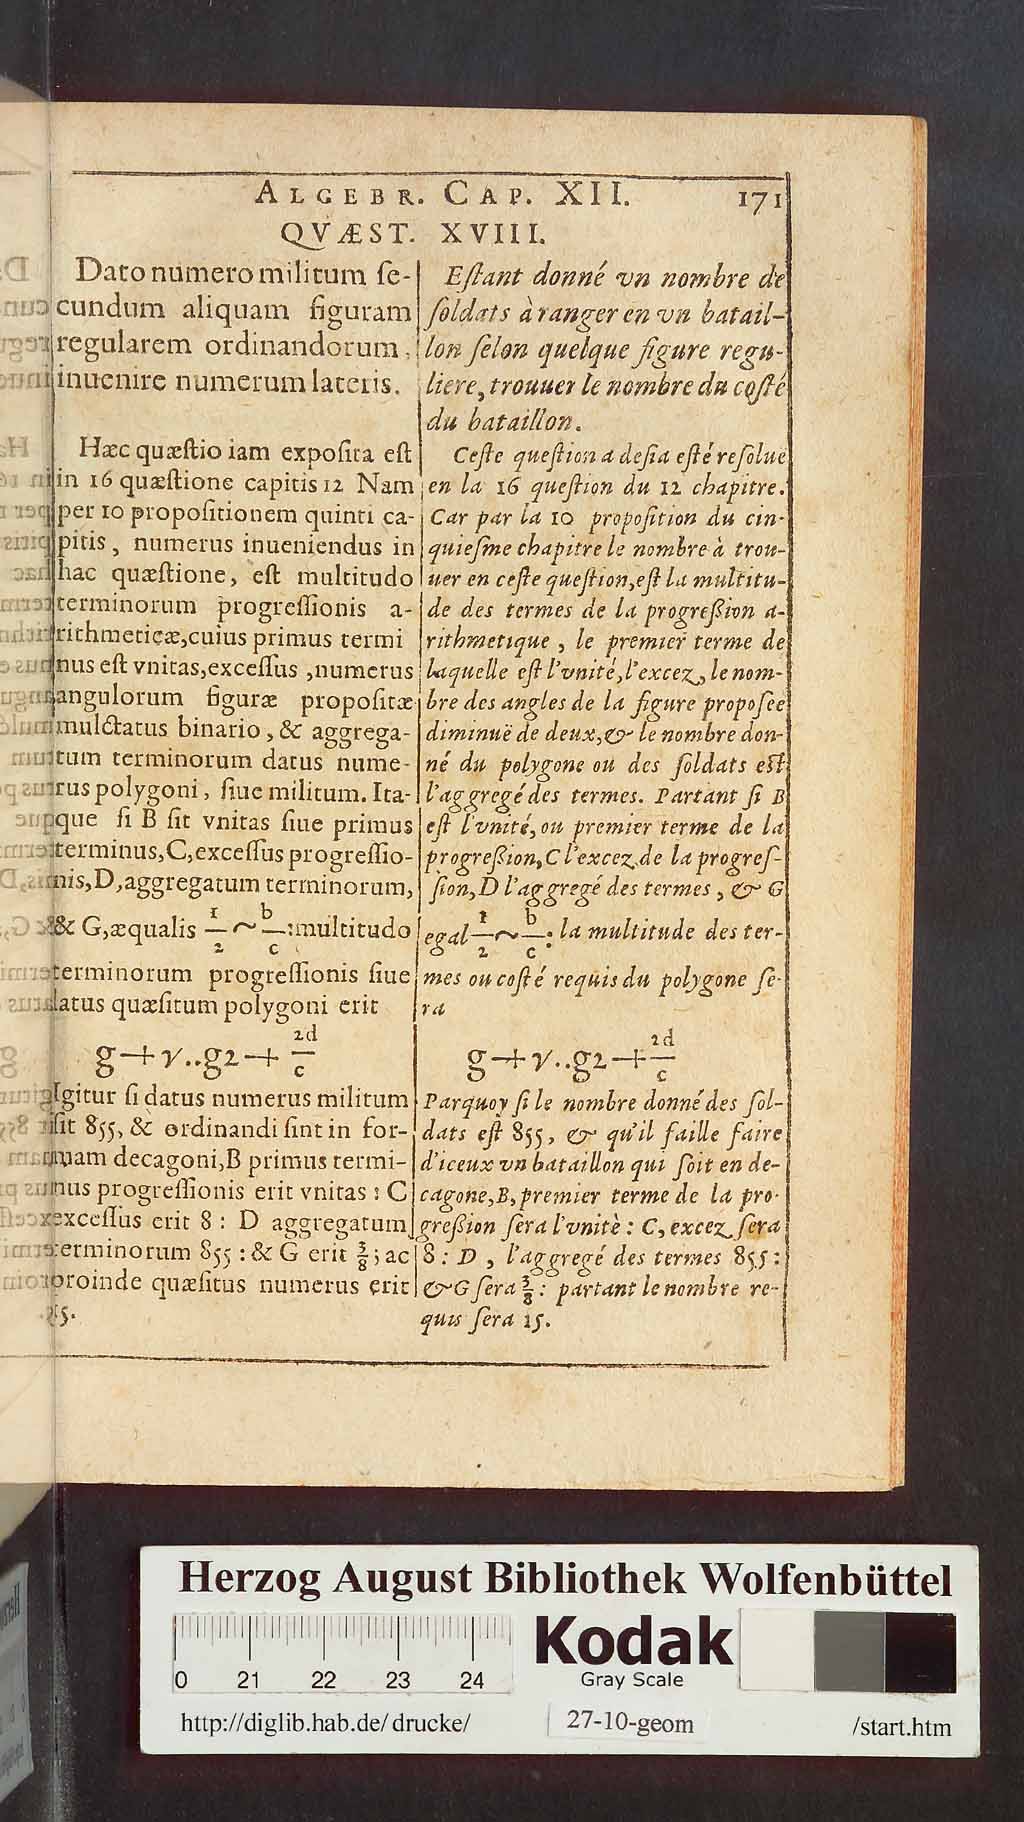 ALGEBR. CAP. XII. 171
QVÆST. XVIII.
Dato numero militum ſe-
cundum aliquam figuram
regularem ordinandorum,
inuenire numerum lateris.
Hæc quæſtio iam expoſita eſt
in 16 quæſtione capitis 12 Nam
per 10 propoſitionem quinti ca-
pitis, numerus inueniendus in
hac quæſtione, eſt multitudo
terminorum progreſſionis a-
rithmeticæ, cuius primus termi
nus eſt vnitas, exceſſus, numerus
angulorum figuræ propoſitæ
mulctatus binario, & aggrega-
tum terminorum datus nume-
rus polygoni, ſiue militum. Ita-
que ſi B ſit vnitas ſiue primus
terminus, C, exceſſus progreſſio-
nis, D, aggregatum terminorum,
& G, æqualis 1/2 ~ b/c : multitudo
terminorum progreſſionis ſiue
latus quæſitum polygoni erit
g + γ..g2 + 2d/c
Igitur ſi datus numerus militum
ſit 855, & ordinandi ſint in for-
mam decagoni, B primus termi-
nus progreſſionis erit vnitas : C
exceſſus erit 8 : D aggregatum
terminorum 855 : & G erit 3/8; ac
proinde quæſitus numerus erit
15.
Eſtant donné vn nombre de
ſoldats à ranger en vn batail-
lon ſelon quelque figure regu-
liere, trouuer le nombre du coſté
du bataillon.
Ceſte queſtion a deſia eſté reſolue
en la 16 queſtion du 12 chapitre.
Car par la 10 propoſition du cin-
quieſme chapitre le nombre à trou-
uer en ceſte queſtion, eſt la multitu-
de des termes de la progreſſion a-
rithmetique, le premier terme de
laquelle eſt l'vnité, l'excez, le nom-
bre des angles de la figure propoſee
diminuë de deux, & le nombre don-
né du polygone ou des ſoldats eſt
l'aggregé des termes. Partant ſi B
eſt l'vnité, ou premier terme de la
progreſſion, C l'excez de la progreſ-
ſion, D l'aggregé des termes, & G
egal 1/2 ~ b/c : la multitude des ter-
mes ou coſté requis du polygone ſe-
ra
g + γ..g2 + 2d/c
Parquoy ſi le nombre donné des ſol-
dats eſt 855, & qu'il faille faire
d'iceux vn bataillon qui ſoit en de-
cagone, B, premier terme de la pro-
greſſion ſera l'vnitè : C, excez ſera
8 : D, l'aggregé des termes 855 :
& G ſera 3/8 : partant le nombre re-
quis ſera 15.
Herzog August Bibliothek Wolfenbüttel
0 21 22 23 24
Kodak
Gray Scale
http://diglib.hab.de/drucke/ 27-10-geom /start.htm